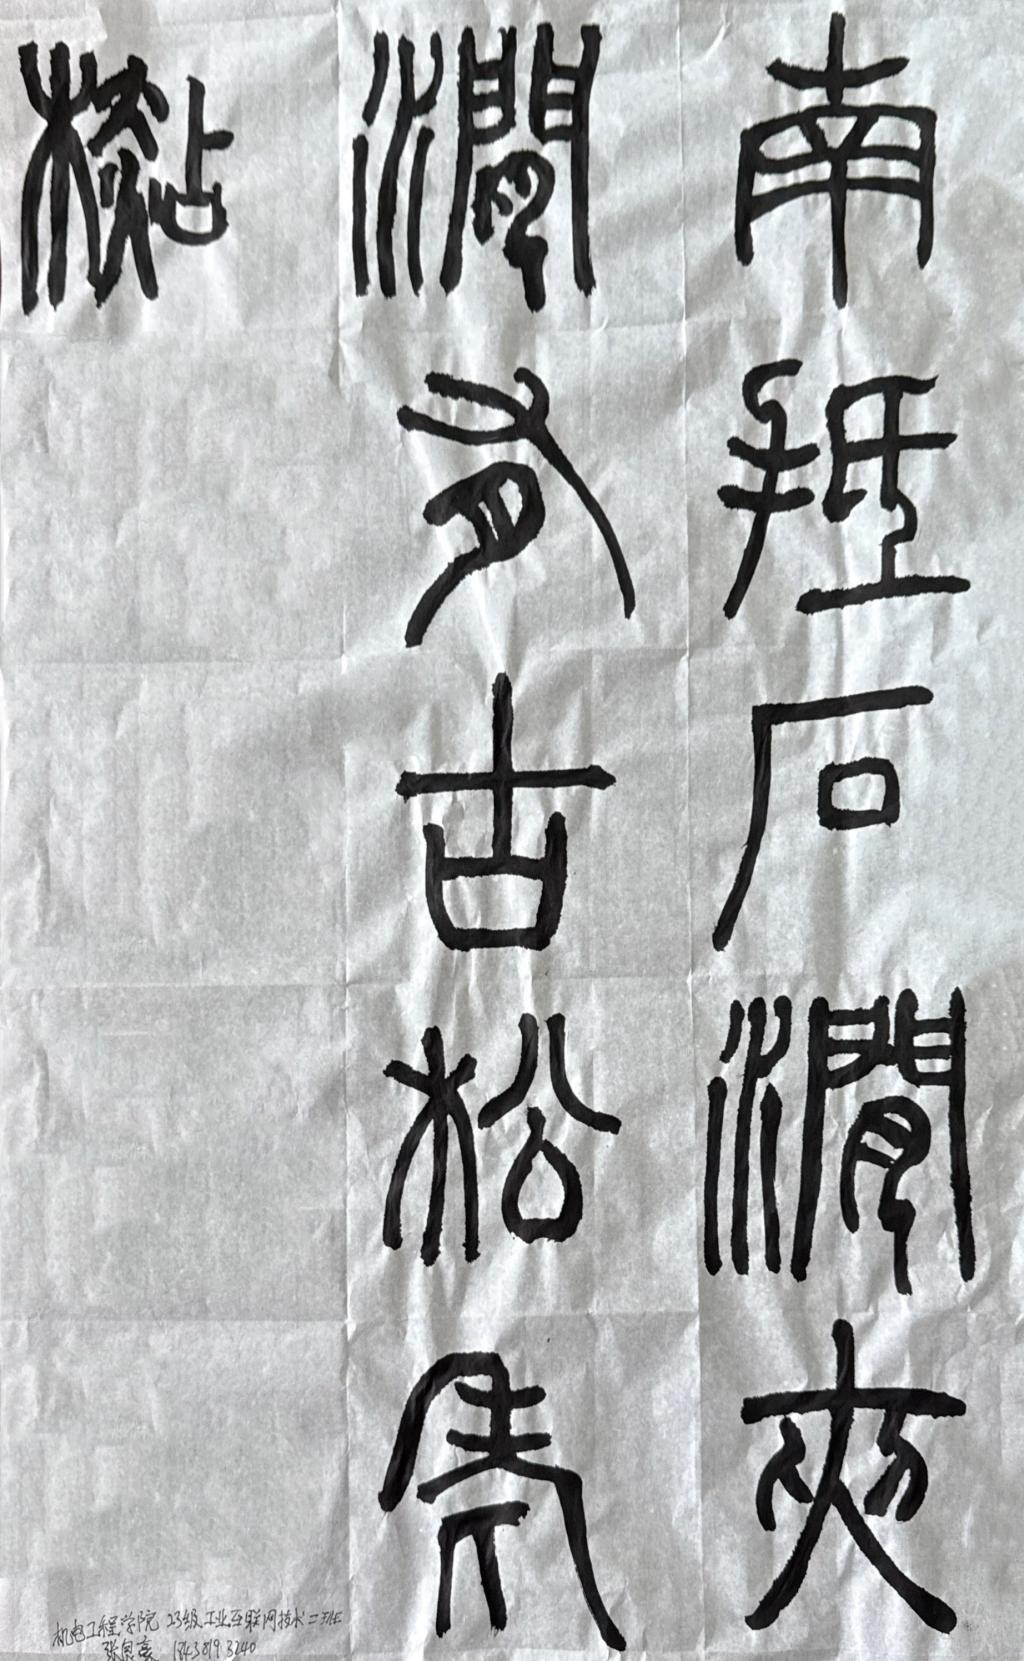 南抵石澗夾
澗有古松老
檆
机电工程学院 23级工业互联网技术二班
张 豪 18438193240